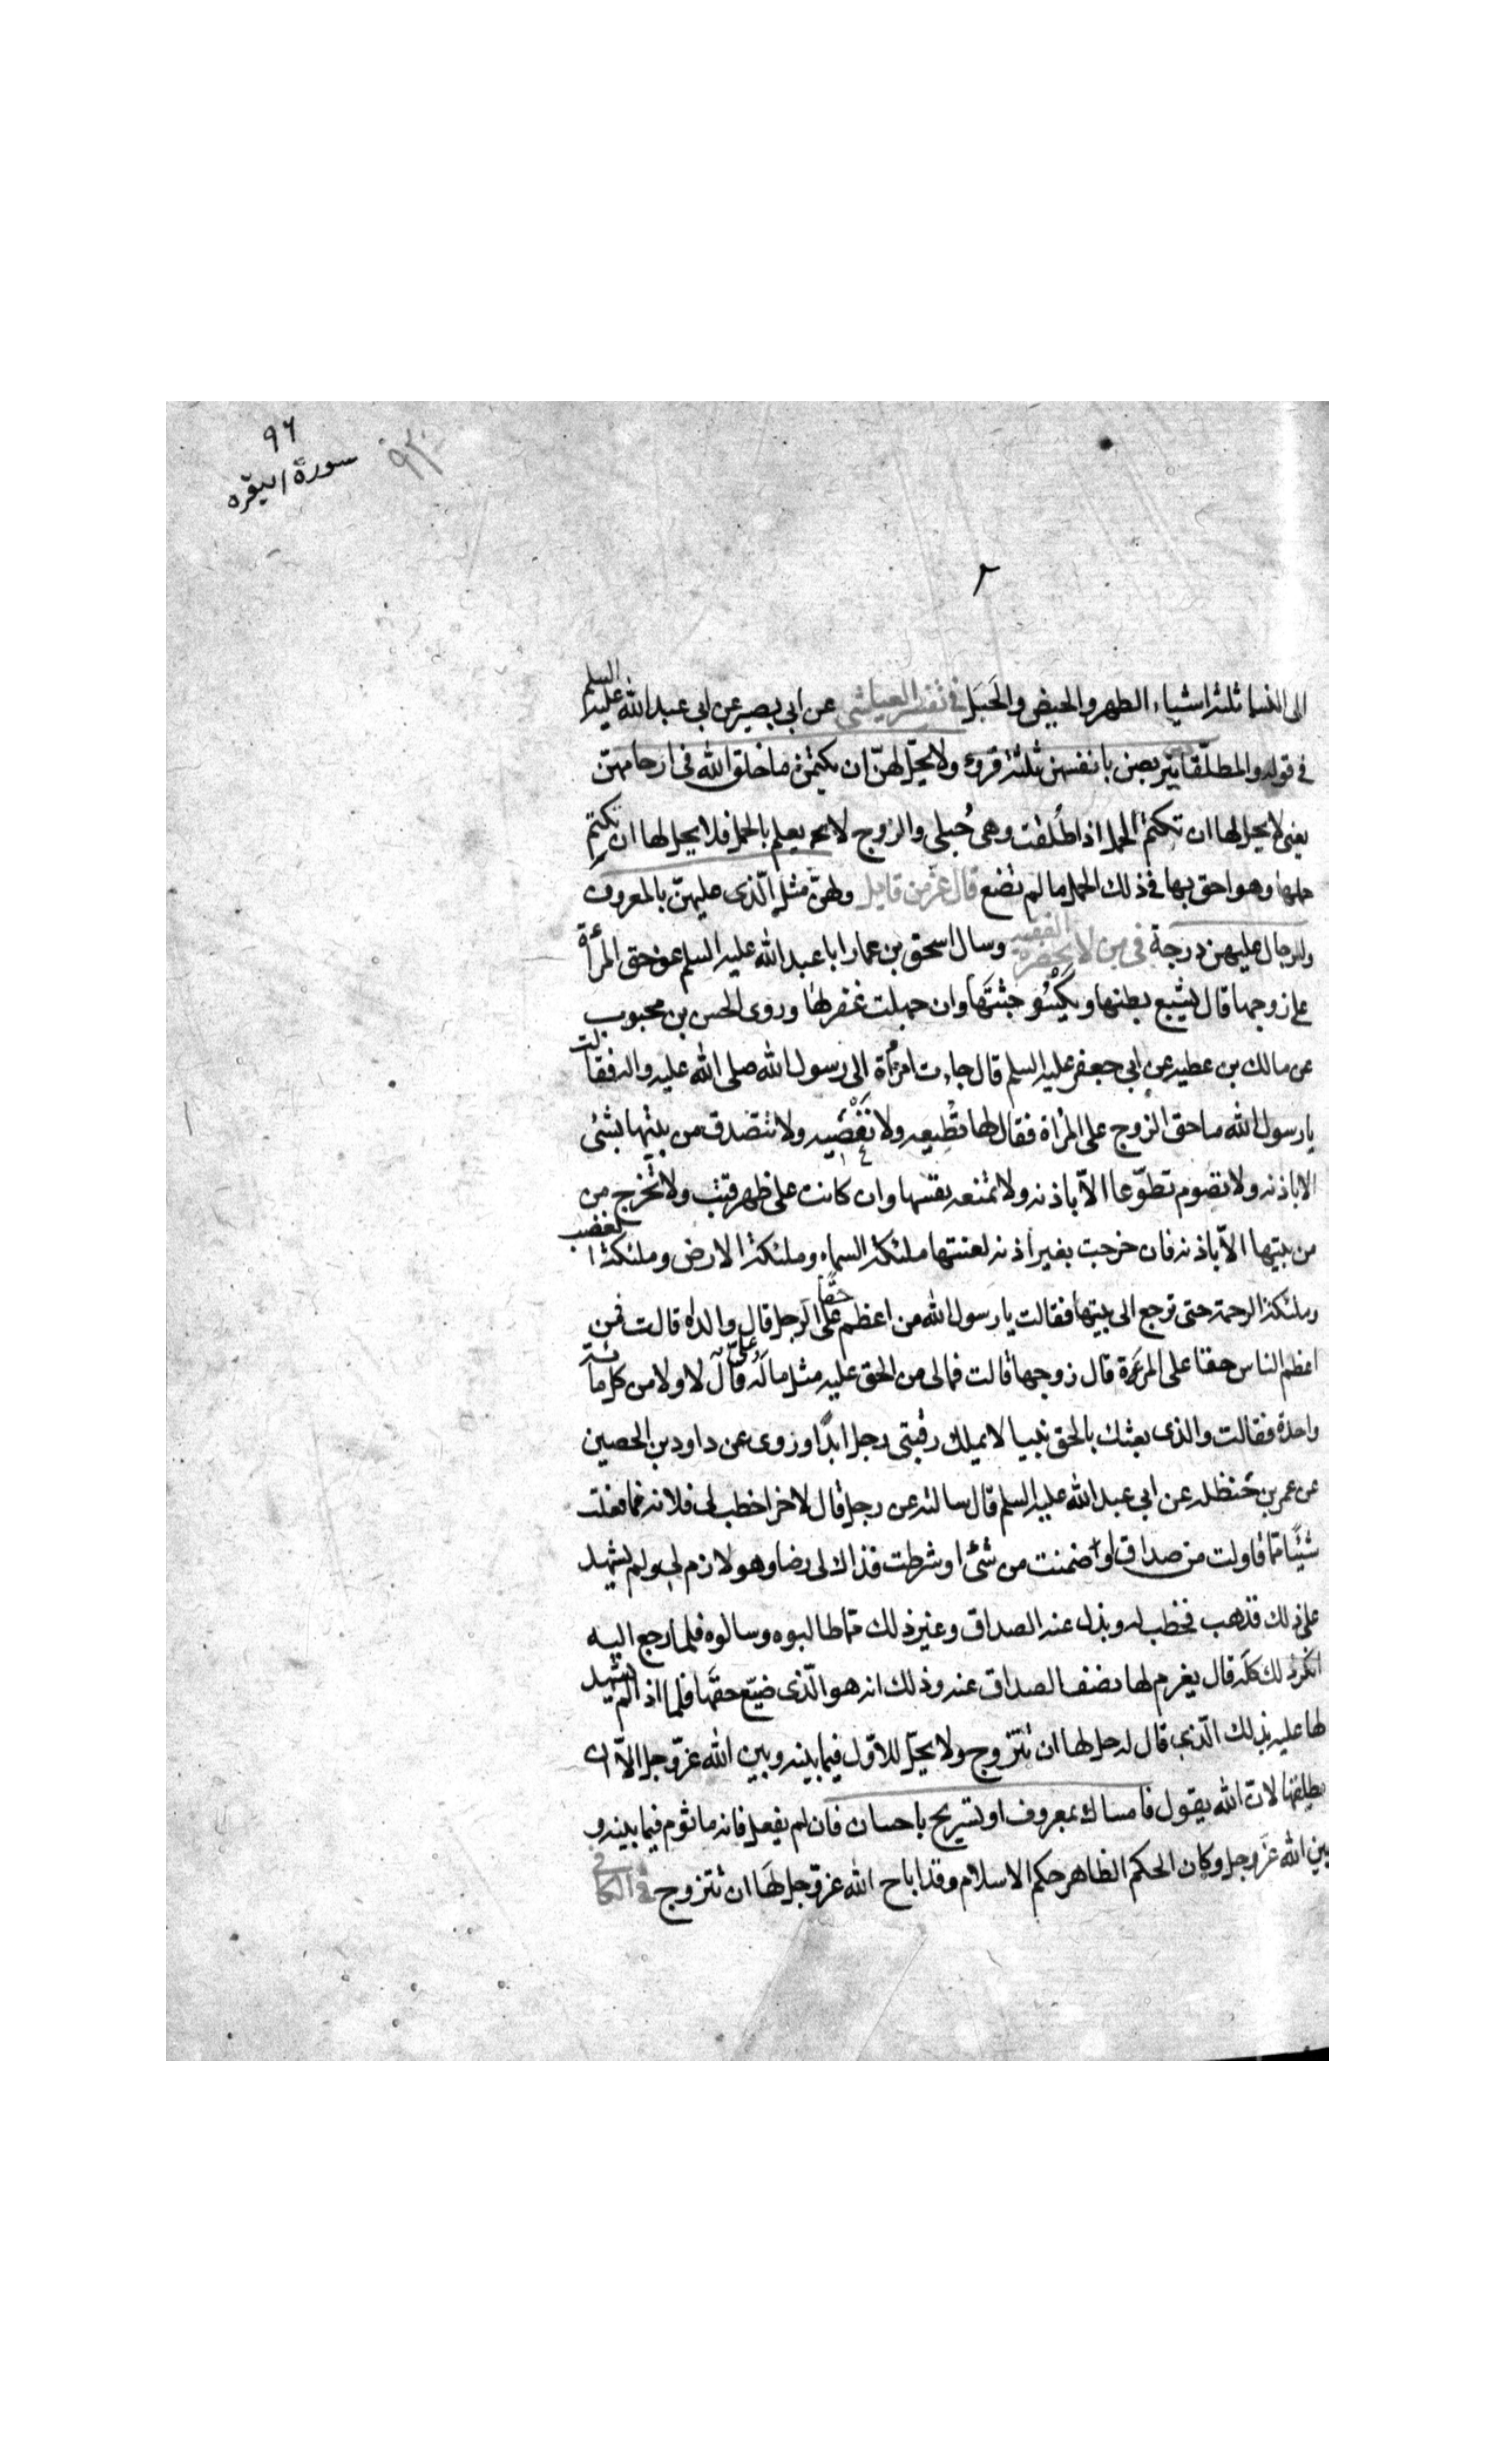 ٩٦
سورة البقره
٢
الى النسا ثلثة اشياء الطهر والحيض والحَبَل في تفسير العياشي عن ابي بصير عن ابي عبد الله عليه السلم
في قوله والمطلّقات يتربصن بانفسهن ثلثة قروء ولا يحلّ لهنّ ان يكتمن ما خلق الله في ارحامهنّ
يعنى لا يحل لها ان تكتم الحمل اذا طُلقت وهى حُبلى والزوج لا يعلم بالحمل فلا يحل لها ان تكتم
حملها وهو احق بها في ذلك الحمل ما لم تضع قال عزّ من قايل ولهنّ مثل الّذى عليهنّ بالمعروف
وللرجال عليهن درجة في من لا يحضره الفقيه وسال اسحق بن عمار ابا عبد الله عليه السلم عن حق المرأة
على زوجها قال يشبع بطنها ويكسُو جثتها وان جهلت غفر لها وروى الحسن بن محبوب
عن مالك بن عطيه عن ابي جعفر عليه السلم قال جاءت امرأة الى رسول الله صلى الله عليه واله فقالت
يا رسول الله ما حق الزوج على المرأة فقال لها تطيعه ولا تعصيه ولا تتصدق من بيتها بشئ
الا باذنه ولا تصوم تطوّعا الاّ باذنه ولا تمنعه نفسها وان كانت على ظهر قتب ولا تخرج من
من بيتها الاّ باذنه فان خرجت بغير اذنه لعنتها ملئكة السماء وملئكة الارض وملئكة الغضب
وملئكة الرحمة حتى ترجع الى بيتها فقالت يا رسول الله من اعظم حقًا على الرجل قال والداه قالت فمن
اعظم الناس حقا على المرءة قال زوجها قالت فمالى من الحق عليه مثل ما له علىّ قال لا ولا من كل مائة
واحدة فقالت والذى بعثك بالحق نبيا لا يملك رقبتى رجل ابدًا وروى عن داود بن الحصين
عن عمر بن حنظله عن ابي عبد الله عليه السلم قال سالته عن رجل قال لاخر اخطب لى فلانه فما فعلت
شيئًا مما قاولت من صداق او ضمنت من شئ او شرطت فذاك لى رضا وهو لازم لى ولم يشهد
على ذلك فذهب فخطب له وبذل عنه الصداق وغير ذلك مما طالبوه وسالوه فلما رجع اليه
انكر ذلك كلّه قال يغرم لها نصف الصداق عنه وذلك انه هو الّذى ضيّع حقها فلما اذ لم يشهد
لها عليه بذلك الّذى قال له حل لها ان تتزوج ولا يحلّ للاوّل فيما بينه وبين الله عزّ وجل الاّ ان
يطلقها لان الله يقول فامساك بمعروف او تسريح باحسان فان لم يفعل فانه ماثوم فيما بينه و
بين الله عزّ وجل وكان الحكم الظاهر حكم الاسلام وقد اباح الله عزّ وجل لها ان تتزوج في الكافي